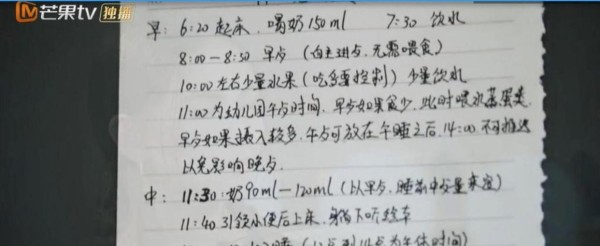 芒果tv 独播
早: 6:20 起床、喝奶150ml 7:30 饮水
8:00-8:30 早歺 (自主进歺,无需喂食)
10:00左右少量水果(吃多要控制)少量饮水
11:00为幼儿园午歺时间.早歺如果食少.此时喂水蒸蛋类.
早歺如果摄入较多,午歺可放在午睡之后.14:00.不可推迟
以免影响晚歺.
中: 11:30:奶90ml-120ml(以早歺、睡前中歺量来定)
11:40 引领小便后上床.躺下听